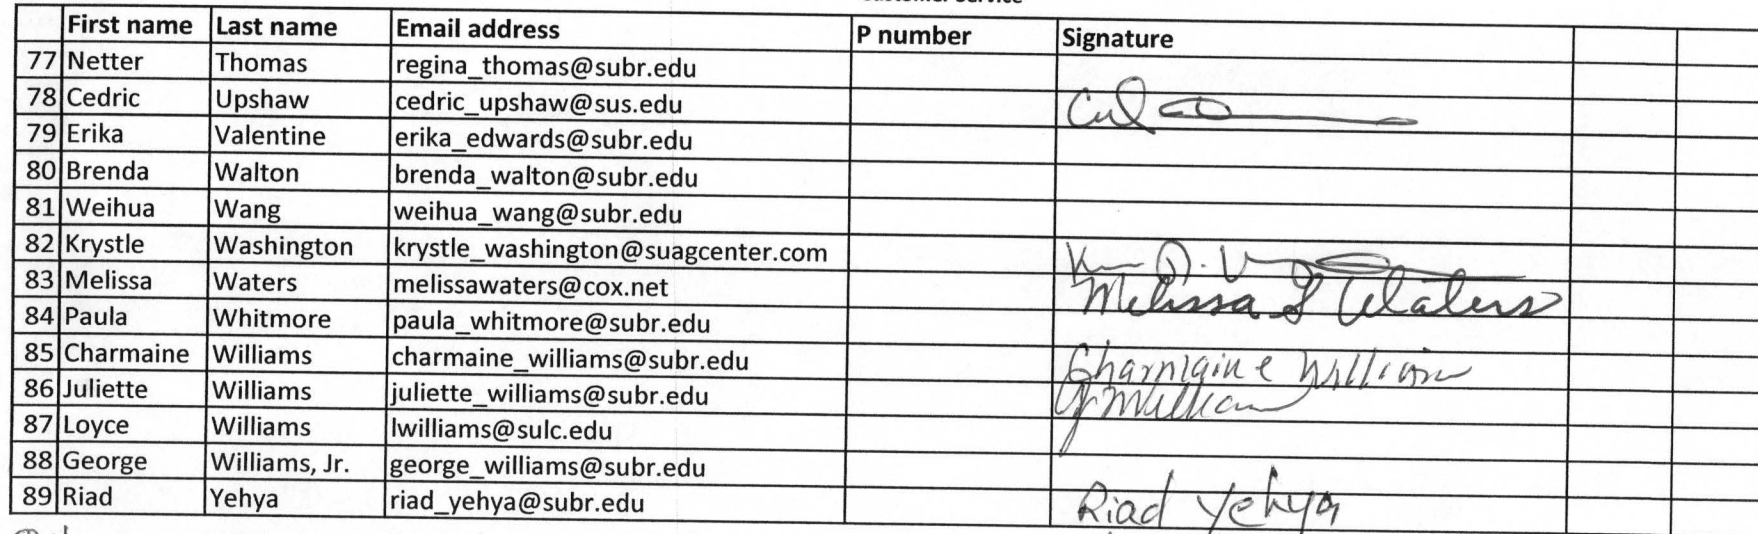 First name Last name Email address P number Signature
77 Netter Thomas regina_thomas@subr.edu
78 Cedric Upshaw cedric_upshaw@sus.edu
79 Erika Valentine erika_edwards@subr.edu
80 Brenda Walton brenda_walton@subr.edu
81 Weihua Wang weihua_wang@subr.edu
82 Krystle Washington krystle_washington@suagcenter.com
83 Melissa Waters melissawaters@cox.net Melissa S Waters
84 Paula Whitmore paula_whitmore@subr.edu
85 Charmaine Williams charmaine_williams@subr.edu Charmaine Williams
86 Juliette Williams juliette_williams@subr.edu
87 Loyce Williams lwilliams@sulc.edu
88 George Williams, Jr. george_williams@subr.edu
89 Riad Yehya riad_yehya@subr.edu Riad Yehya